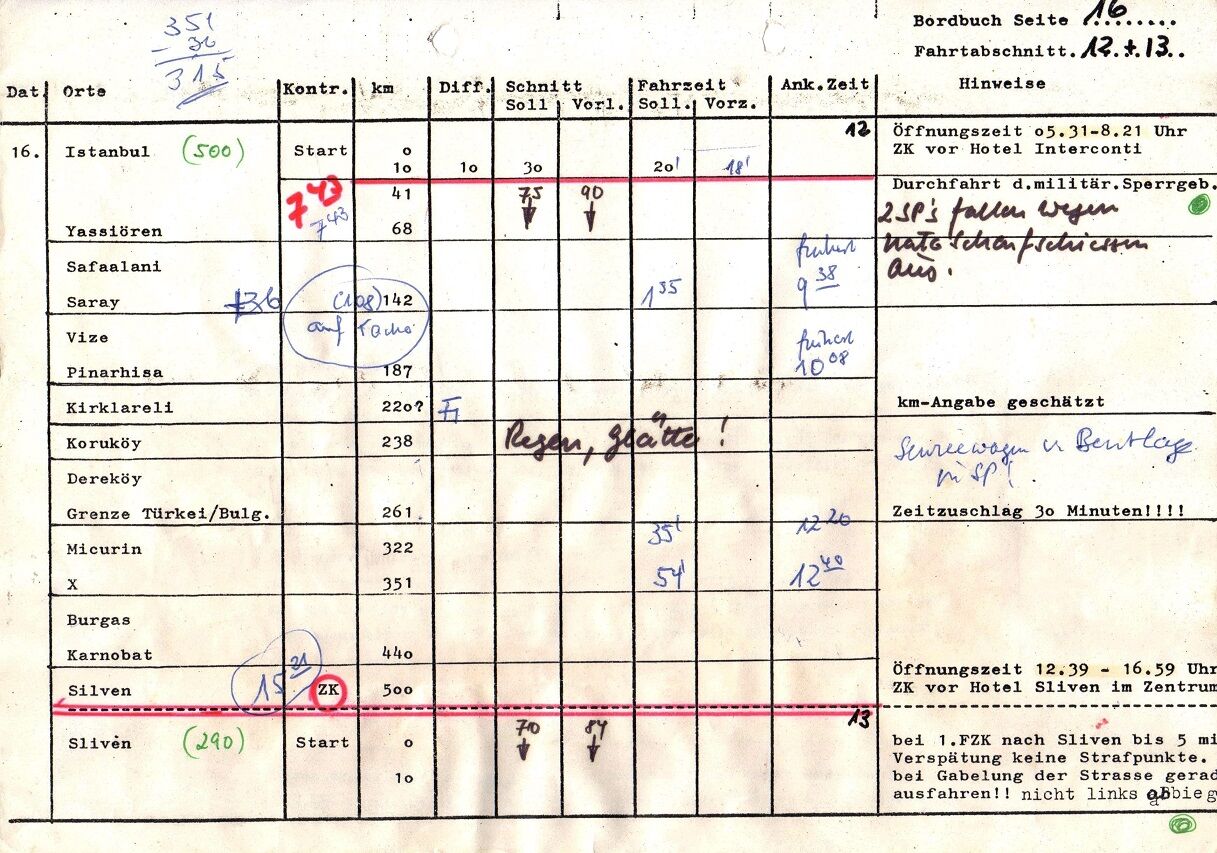 351
- 36
315
Bordbuch Seite 16........
Fahrtabschnitt.12.+.13..
Dat. Orte Kontr. km Diff. Schnitt Fahrzeit Ank.Zeit Hinweise
Soll Vorl. Soll. Vorz.
12 Öffnungszeit o5.31-8.21 Uhr
16. Istanbul (500) Start o ZK vor Hotel Interconti
1o 1o 3o 2o' 18'
7 43 41 75 90 Durchfahrt d.militär.Sperrgeb.
2 SP's fallen wegen
Yassiören 7 43 68
Nato Scharfschiessen
aus.
Safaalani frühest
Saray 136 (108) 142 1 35 9 38
auf Tacho
Vize frühest
Pinarhisa 187 10 08
Kirklareli 22o? km-Angabe geschätzt
Koruköy 238 Regen, Glätte! Servicewagen v. Bentlage
Dereköy
Grenze Türkei/Bulg. 261. Zeitzuschlag 3o Minuten!!!!
Micurin 322 35' 12 20
X 351 54' 12 40
Burgas
Karnobat 44o
Öffnungszeit 12.39 - 16.59 Uhr
Silven 15 21 ZK 5oo ZK vor Hotel Sliven im Zentrum
13
Sliven (290) Start o 70 84 bei 1.FZK nach Sliven bis 5 mi
Verspätung keine Strafpunkte.
1o bei Gabelung der Strasse gerad
ausfahren!! nicht links abbieg